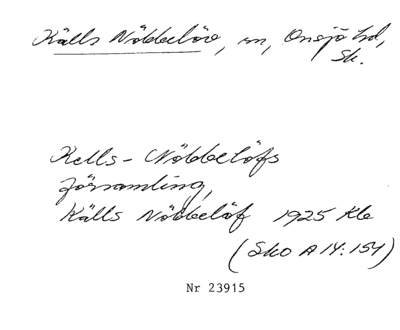 Källs Nöbbelöv, sn, Onsjö hd,
Sk.
Kells-Nöbbelöfs
församling,
Källs Nöbbelöf 1925 Kle
(Sko A 14:154)
Nr 23915